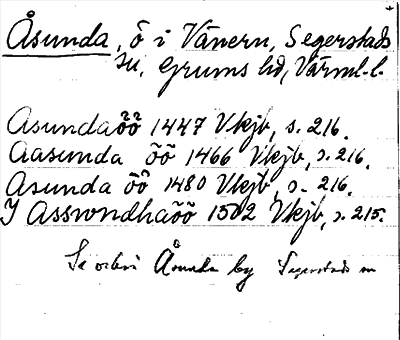 Åsunda, ö i Vänern, Segerstads
sn, Grums hd, Värml. l.
Asundaöö 1447 Vkjb, s. 216.
Aasunda öö 1466 Vkjb, s. 216.
Asunda öö 1480 Vkjb, s. 216.
J Asswndhaöö 1502 Vkjb, s. 215.
Se också Åsunda by Segerstads sn